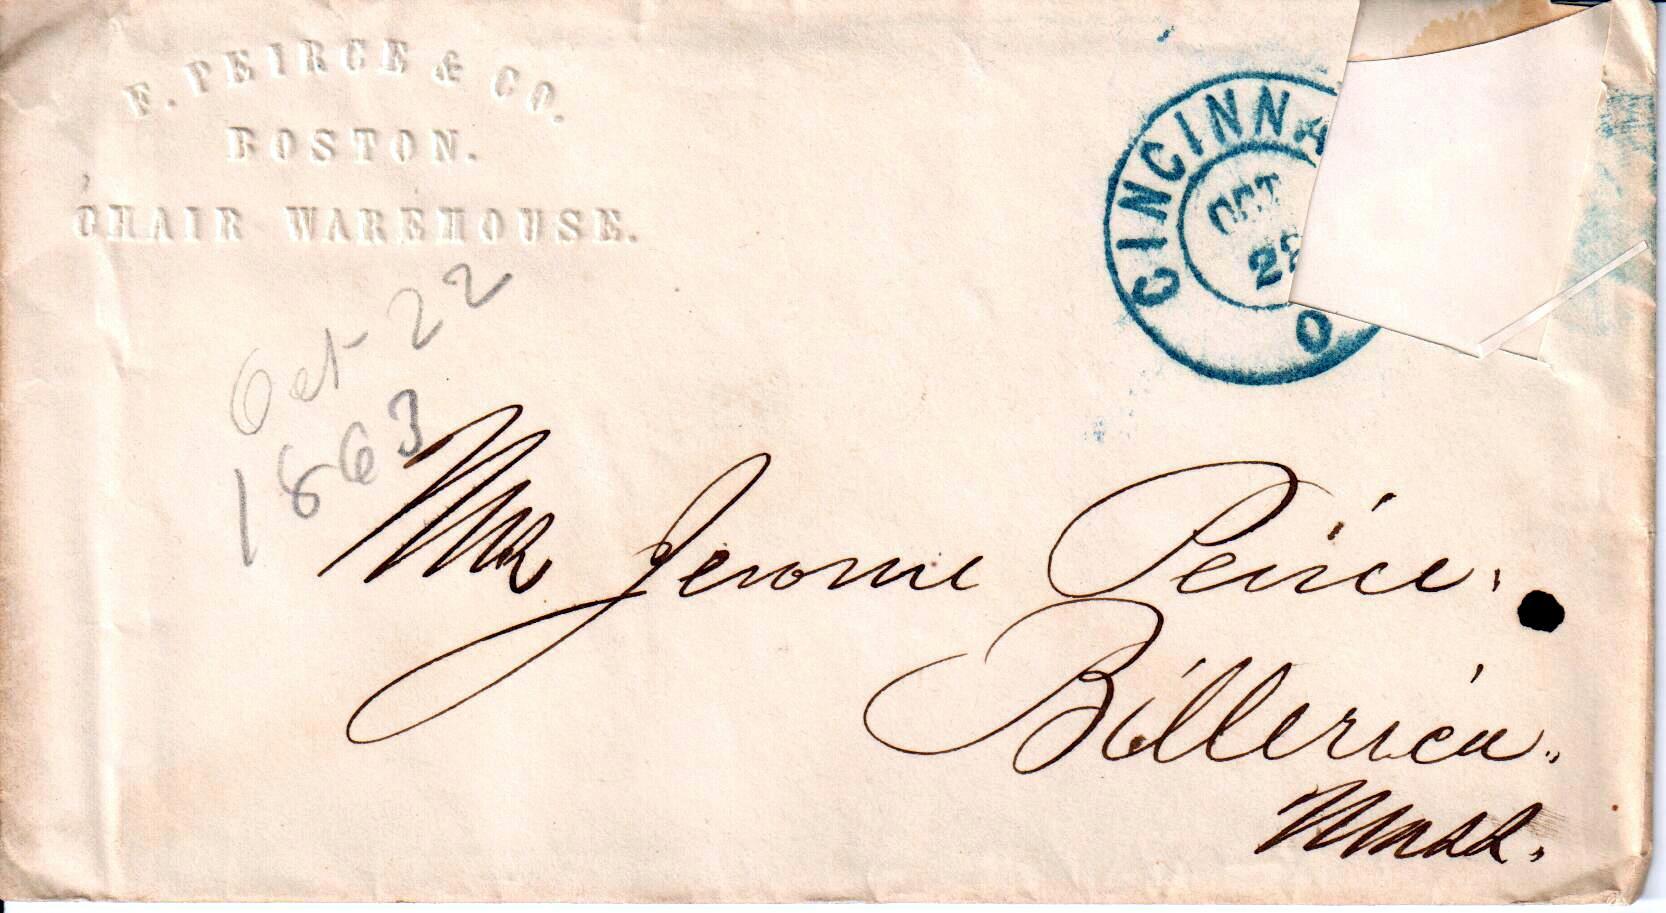 F. PEIRCE & CO.
BOSTON.
CHAIR WAREHOUSE.
CINCINNA
OCT
O
Oct 22
1863
Mr Jerome Peirce.
Billerica.
Mass.